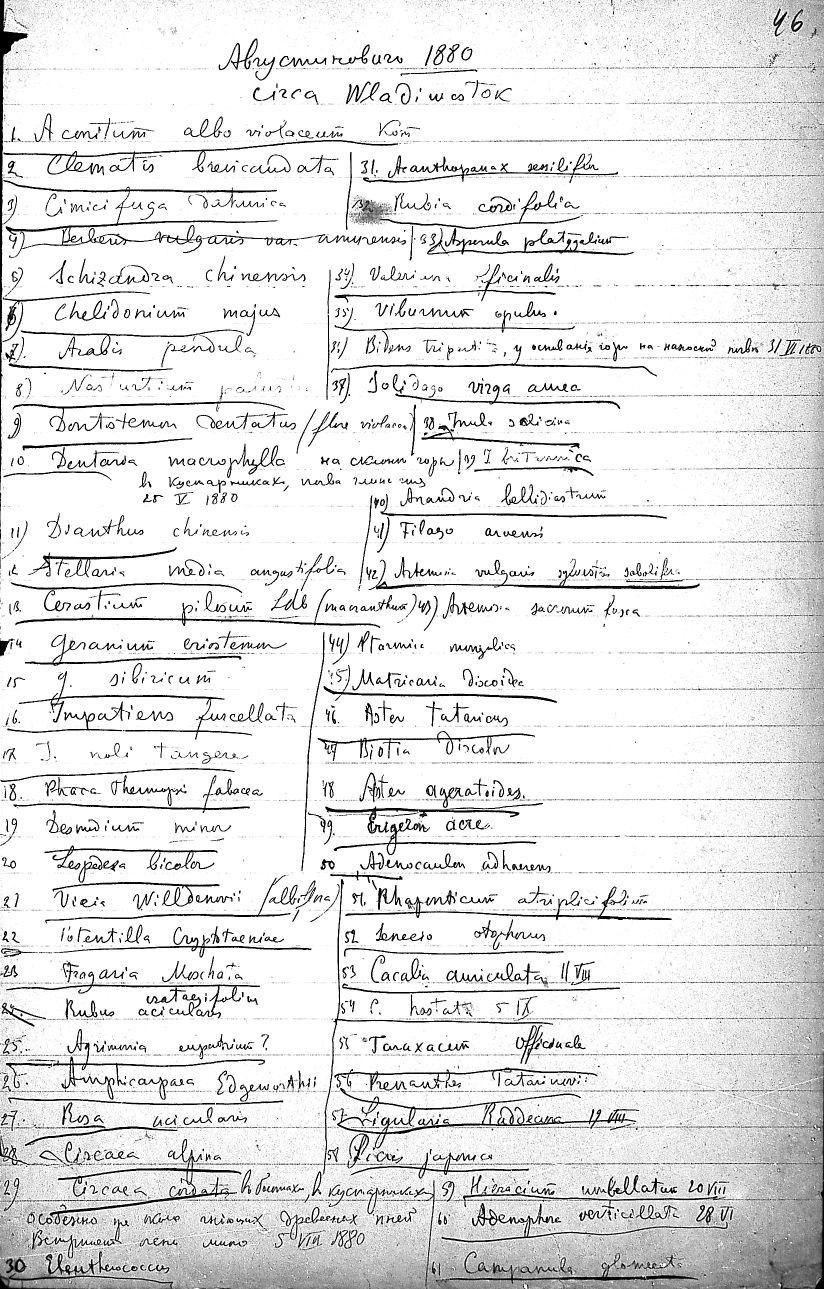 46.
Августинович 1880
circa Wladiwostok
1. Aconitum albo violaceum Kom
2 Clematis brevicaudata
3) Cimicifuga dahurica
4) Berberis vulgaris var. amurensis
5) Schizandra chinensis
6) Chelidonium majus
7). Arabis pendula
8) Nasturtium palustre
9 Dontostemon dentatus (flore violaceo)
10. Dentaria macrophylla на склоне горы
в кустарниках, почва глинист
25 V 1880
11) Dianthus chinensis
12 Stellaria media angustifolia
13 Cerastium pilosum Ldb (macranthum)
14 Geranium eriostemon
15 g. sibiricum
16. Impatiens furcellata
17 I. noli tangere
18. Phaca Thermopsis fabacea
19 Desmodium minor
20 Lespedeza bicolor
21 Vicia Willdenovii (albiflora)
22 Potentilla Cryptotaeniae
23 Fragaria Moschata
crataegifolius
24. Rubus acicularis
25. Agrimonia eupatorium?
26. Amphicarpaea Edgeworthii
27. Rosa acicularis
28 Circaea alpina
29 Circaea cordata в болотах, в кустарниках
особенно около гниющих древесных пней
Встречает очень мало 5 VIII 1880
30 Eleutherococcus
31. Acanthopanax sessiliflor
32. Rubia cordifolia
33) Asperula platygalium
34) Valeriana officinalis
35) Viburnum opulus.
36) Bidens tripartita, у основания горы на наносной почве 31 VII 1880
37) Solidago virga aurea
38 Inula salicina
39 I britannica
40) Anandria bellidiastrum
41) Filago arvensis
42) Artemisia vulgaris sylvestris sobolifera
43) Artemisia sacrorum fusca
44) Ptarmica mongolica
45) Matricaria discoidea
46. Aster tataricus
47 Biotia discolor
48 Aster ageratoides.
49. Erigeron acre.
50 Adenocaulon adhaerens
51. Rhaponticum atriplicifolium
52 Senecio otophorus
53 Cacalia auriculata 11 VIII
54 C. hastata 5 IX
55 Taraxacum officinale
56 Prenanthes Tatarinovii
57 Ligularia Raddeana 19 VIII
58 Picris japonica
59 Hieracium umbellatum 20 VIII
60 Adenophora verticillata 28 VI
61 Campanula glomerata